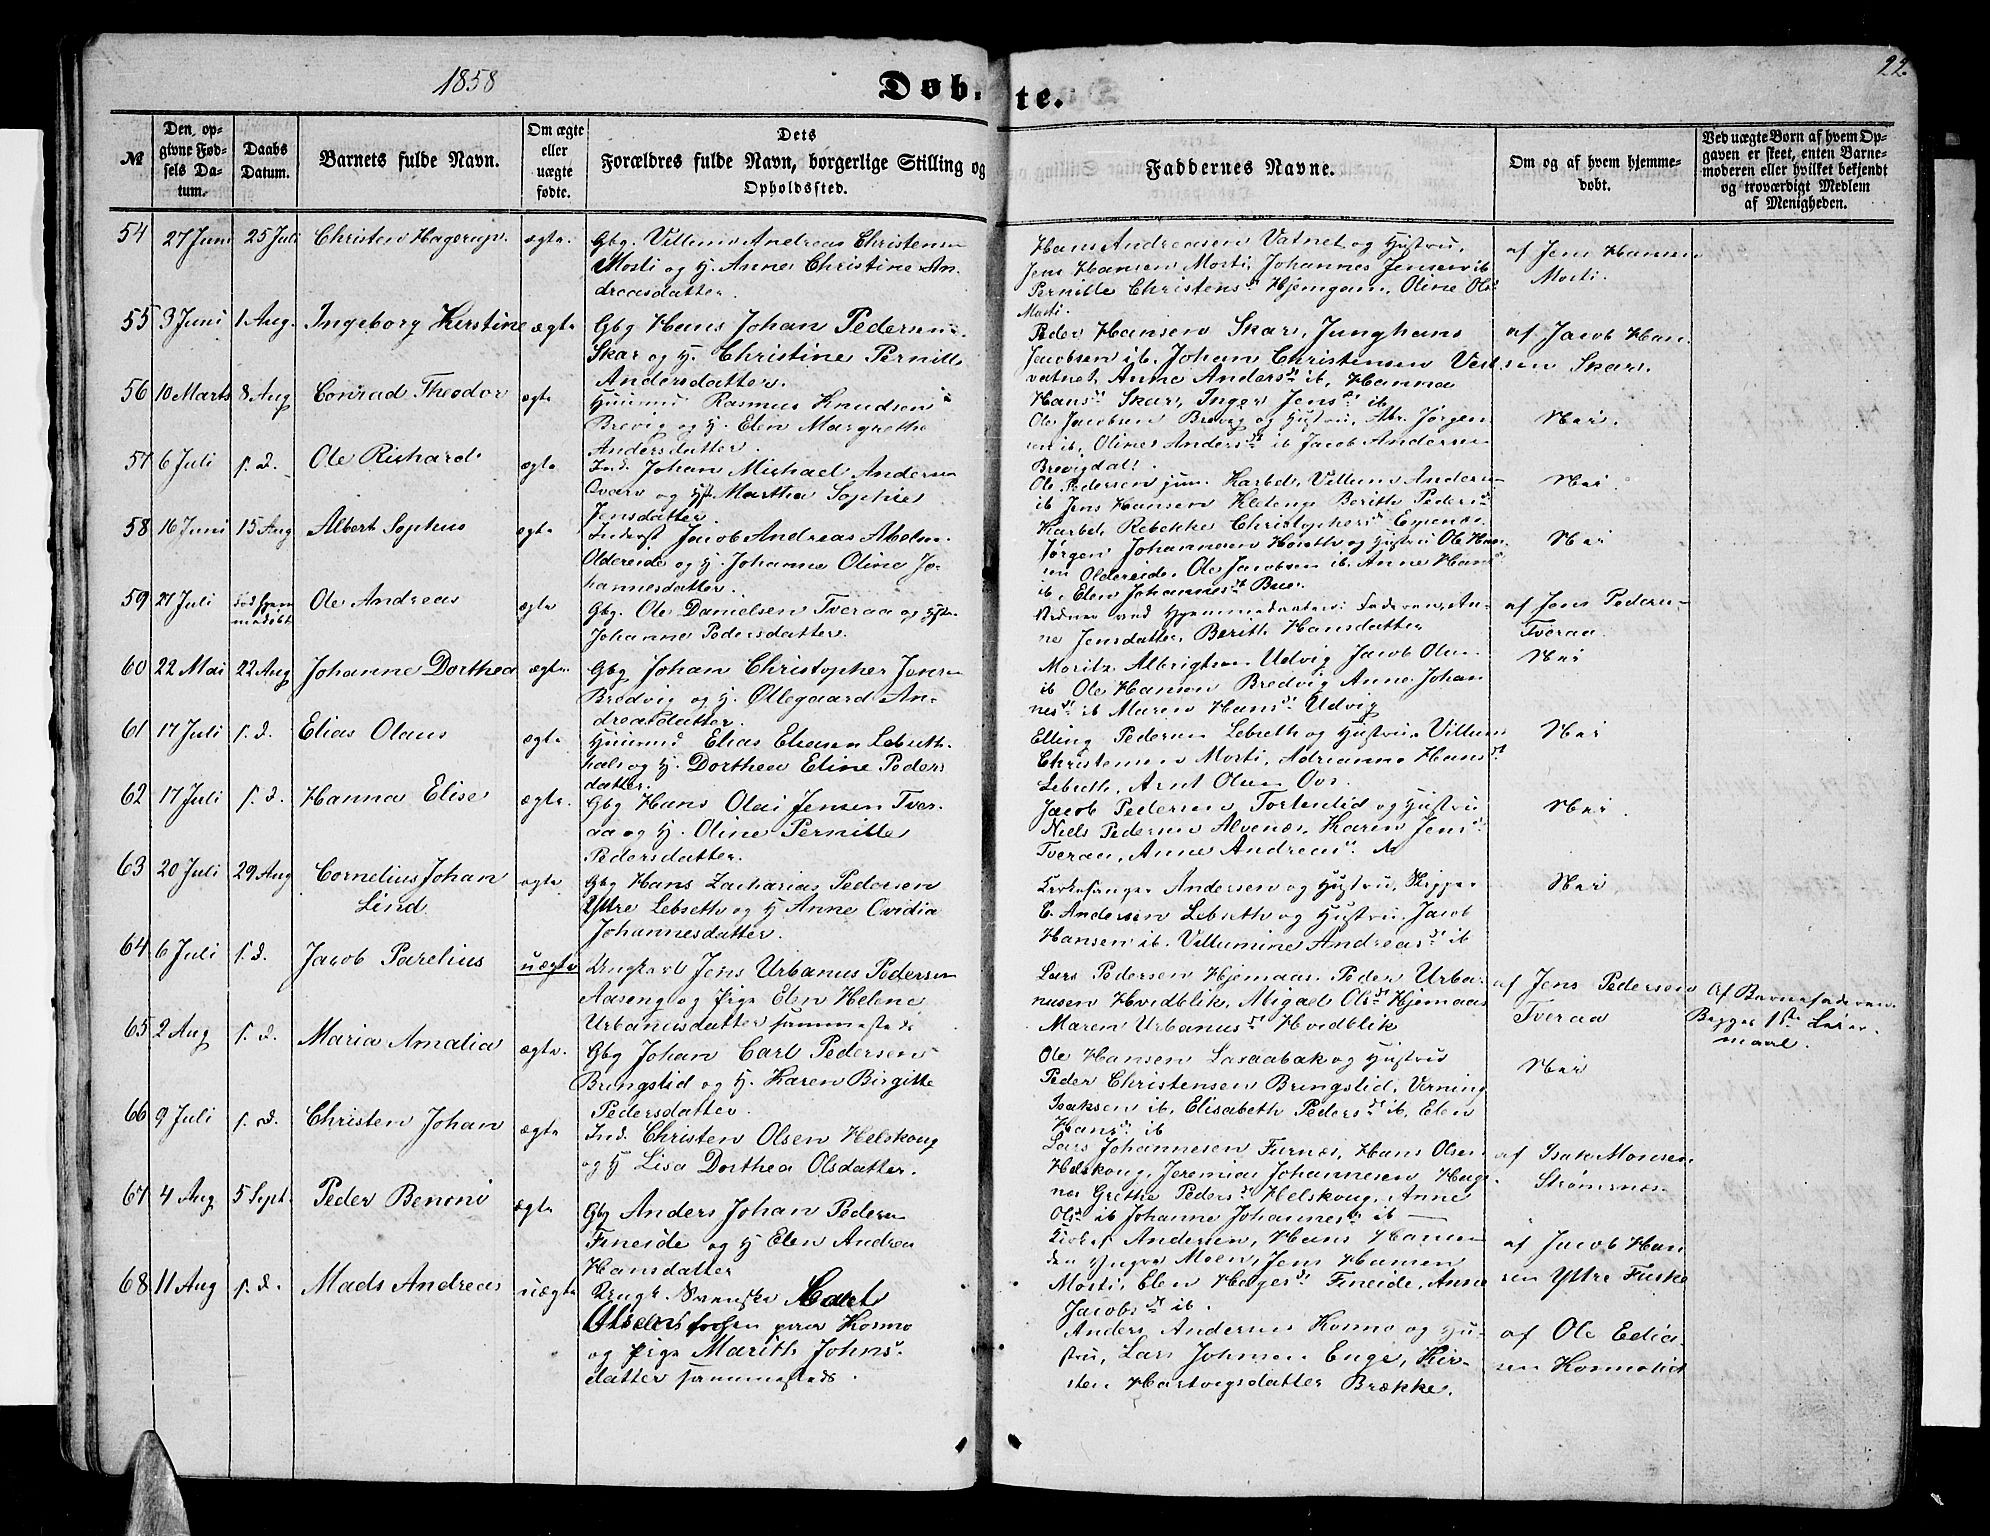 1858
Døb-
te.
22.
№
Den, op-
givne Fød-
sels Da-
tum.
Daabs
Datum.
Barnets fulde Navn.
Om ægte
eller
uægte
fødte.
Dets
Forældres fulde Navn, borgerlige Stilling og
Opholdssted.
Faddernes Navne.
Om og af hvem hjemme-
døbt.
Ved uægte Børn af hvem Op-
gaven er skeet, enten Barne-
moderen eller hvilket bekjendt
og troværdigt Medlem
af Menigheden.
54 27 Juni 25 Juli Christen Hagerup. ægte.
Gbg. Villum Andreas Christensen
Mosti og H. Anne Christine An-
dreasdatter.
Hans Andreasen Vatnet og Hustru,
Jens Hansen Mosti, Johannes Jensen ib
Pernille Christens dt Hjemgam, Oline Ols dt
Mosti.
af Jens Hansen
Mosti.
55 3 Juni 1 Aug. Ingeborg Kerstine ægte
Gbg Hans Johan Pedersen
Skar og H. Christine Pernille
Andersdatter.
Peder Hansen Skar, Junghans
Jacobsen ib. Johan Christensen Vest
vatnet, Anne Anders dt ib, Hanna
Hans dt Skar, Inger Jens dt ib
af Jacob Han-
sen Skar.
56 10 Marts 8 Aug Conrad Theodor ægte
Huusmd Rasmus Knudsen
Brevig og H. Elen Margrethe
Andersdatter.
Ole Jacobsen Brevig og Hustru, Abr. Jørgen
sen ib, Oline Anders dt ib Jacob Andersen
Brevigdal.
Nei.
57 6 Juli s. d. Ole Richard ægte
Ind. Johan Michael Andersen
Qvarv og Hst Martha Sophie
Jensdatter.
Ole Pedersen jun. Karbøl, Villum Andersen
ib Jens Hansen Kleteng Berith Peders dt
Karbøl, Rebekka Christophers dt Evenæs.
Nei.
58 16 Juni 15 Aug Albert Sophus ægte
Inderst Jacob Andreas Abelsen
Oldereide og H. Johanne Olina Jo-
hannesdatter.
Jørgen Johannesen Horseth og Hustru Ole Han-
sen Oldereide, Ole Jacobsen ib. Anne Hans dt
ib, Elen Johannes dt Bue.
Nei
59 21 Juli død hjem
medøbt Ole Andreas ægte
Gbg. Ole Danielsen Tveraa og Hst
Johanne Pedersdatter.
Vidner ved Hjemmedaaben: Faderen, An-
ne Jensdatter, Berith Hansdatter
af Jens Pedersen
Tveraa.
60 22 Mai 22 Aug Johanne Dorthea ægte.
Gbg Johan Christopher Jensen
Bredvig og H. Øllegaard An-
dreasdatter.
Moritz Albrigtsen Udvig Jacob Olsen
ib Ole Hansen Bredvig Anne Johan
nes dt ib Maren Hans dt Udvig
Nei
61 17 Juli s. d. Elias Olaus ægte.
Huusmd Elias Eliasen Lebseth-
hals og H. Dorthea Eline Peders
datter.
Elling Pedersen Lebseth og Hustru, Villum
Christensen Mosti, Adrianna Hans dt
Lebseth, Arnt Olsen Ovr.
Nei
62 17 Juli s. d. Hanna Elise ægte.
Gbg Hans Olai Jensen Tver-
aa og H. Oline Pernille
Pedersdatter.
Jacob Pedersen Tortenlid og Hustru
Niels Pedersen Alvenæs, Karen Jens dt
Tveraa, Anne Andreas dt ib
Nei.
63 20 Juli 29 Aug Cornelius Johan
Lind. ægte
Gbg Hans Zacharias Pedersen
Yttre Lebseth og H Anne Ovidia
Johannesdatter.
Kirkesanger Andersen og Hustru, Skipper
E. Andersen Lebseth og Hustru, Jacob
Hansen ib. Villumine Andreas dt ib
Nei
64 6 Juli s. d. Jacob Parelius uægte
Ungkarl Jens Urbanus Pedersen
Aaseng og Pige Elen Helene
Urbanusdatter sammesteds
Lars Pedersen Hjemaas Peder Urba-
nusen Hvidblik, Abigael Ols dt Hjemaas
Maren Urbanus dt Hvidblik
af Jens Pedersen
Tveraa
Af Barnefaderen.
Begges 1ste Leier-
maal.
65 2 Aug s. d. Maria Amalia ægte.
Gbg Johan Carl Pedersen
Bringslid og H. Karen Birgitte
Pedersdatter.
Ole Hansen Laxaabak og Hustru
Peder Christensen Bringslid, Verning
Isaksen ib, Elisabeth Peders dt ib, Elen
Hans dt ib
Nei
66 9 Juli s. d. Christen Johan ægte
Ind. Christen Olsen Helskoug
og H Lisa Dorthea Olsdatter.
Lars Johannesen Furnæs, Hans Olsen
Helskoug, Jeremias Johannesen Hag-
næs Grethe Peders dt Helskoug, Anne
Ols dt ib Johanne Johannes dt ib
af Isak Monsen
Strømsnæs
67 4 Aug 5 Sept. Peder Benoni ægte
Gbg Anders Johan Pedersen
Fineide og H Elen Andrea
Hansdatter
Kirkes. Andersen, Hans Hansen
den yngre Moen, Jens Hansen
Mosti, Elen Hagers dt Fineide, Anne
Jacobs dt ib.
af Jacob Han
sen Yttre Fuske
68 11 Aug s. d. Mads Andreas uægte
Ungk. Svenske Carl
Olsen paa Kosmo
og Pige Marith Johns-
datter sammesteds.
Anders Andersen Kosmo og Hu-
stru, Lars Johnsen Enge, Kir-
sten Hartvigsdatter Brække.
af Ole Edia-
sen Kosmolid